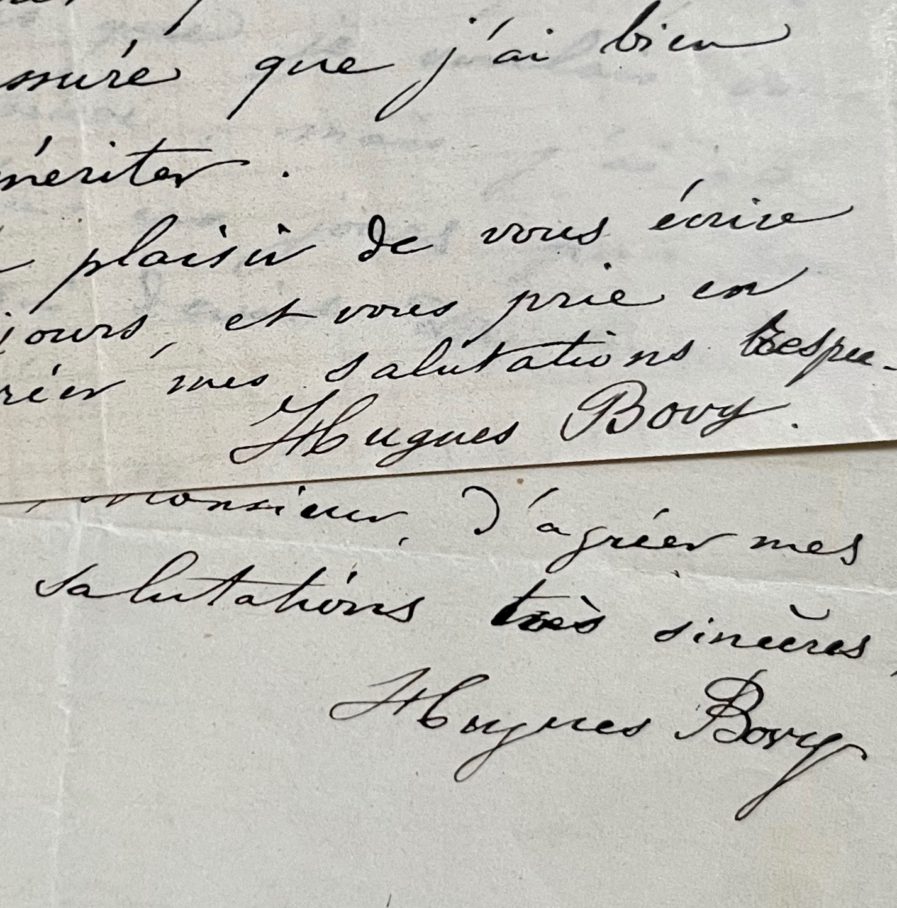 ssuré que j'ai bien
mériter.
plaisir de vous écrire
jours, et vous prie en
réer mes salutations respec-
Hugues Bovy.
Monsieur, d'agréer mes
salutations très sincères,
Hugues Bovy